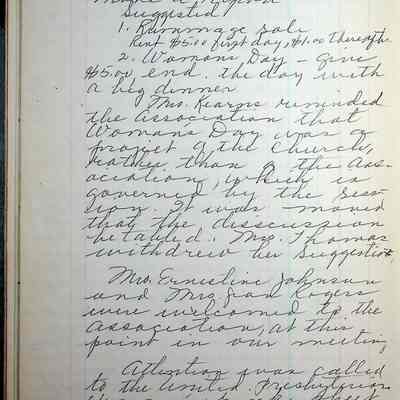 Suggested
1. Rummage sale
Rent $5.00 first day, $1.00 thereafter
2. Womans Day – give
$5.00, end. the day with
a big dinner
Mrs. Kearns reminded
the Association that
Womans Day was a
project of the Church,
rather than of the Ass-
ociation, which is
governed by the Sess-
sion. It was moved
that the disscussion
be tabled. Mrs. Thomas
withdrew her suggestion.
Mrs. Ernestine Johnson
and Mrs Jean Rogers
were welcomed to the
association, at this
point in our meeting
Attention was called
to the United Presbyterian